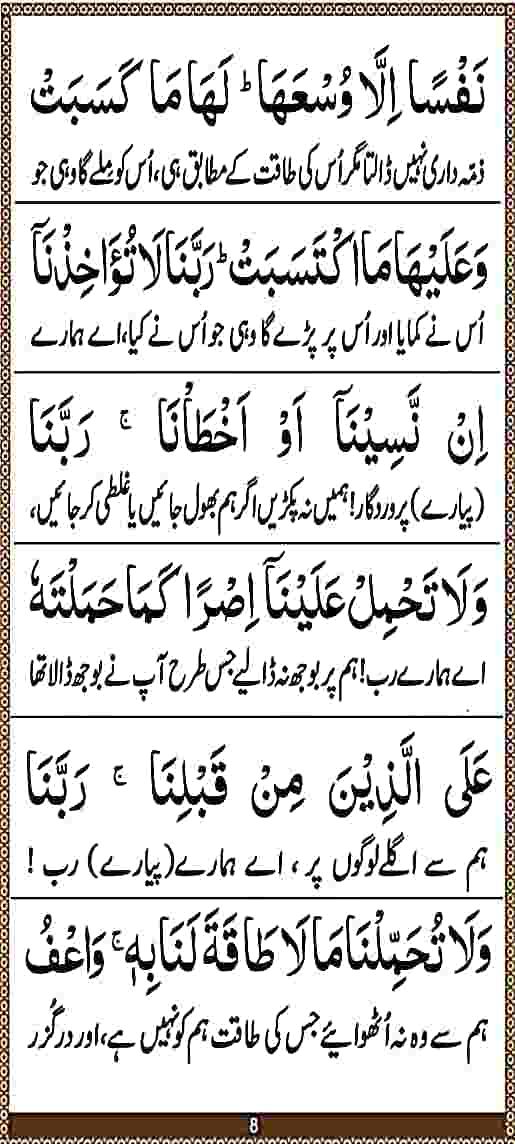 نَفْسًا اِلَّا وُسْعَهَا ؕ لَهَا مَا كَسَبَتْ
ذمّہ داری نہیں ڈالتا مگر اُس کی طاقت کے مطابق ہی، اُس کو ملے گا وہی جو
وَعَلَيْهَا مَا اكْتَسَبَتْ ؕ رَبَّنَا لَا تُؤَاخِذْنَاۤ
اُس نے کمایا اور اُس پر پڑے گا وہی جو اُس نے کیا، اے ہمارے
اِنْ نَّسِيْنَاۤ اَوْ اَخْطَاْنَا ۚ رَبَّنَا
(پیارے) پروردگار! ہمیں نہ پکڑیں اگر ہم بھول جائیں یا غلطی کر جائیں،
وَلَا تَحْمِلْ عَلَيْنَاۤ اِصْرًا كَمَا حَمَلْتَهٗ
اے ہمارے رب! ہم پر بوجھ نہ ڈالیے جس طرح آپ نے بوجھ ڈالا تھا
عَلَى الَّذِيْنَ مِنْ قَبْلِنَا ۚ رَبَّنَا
ہم سے اگلے لوگوں پر، اے ہمارے (پیارے) رب!
وَلَا تُحَمِّلْنَا مَا لَا طَاقَةَ لَنَا بِهٖ ۚ وَاعْفُ
ہم سے وہ نہ اُٹھوائیے جس کی طاقت ہم کو نہیں ہے، اور درگزر
8